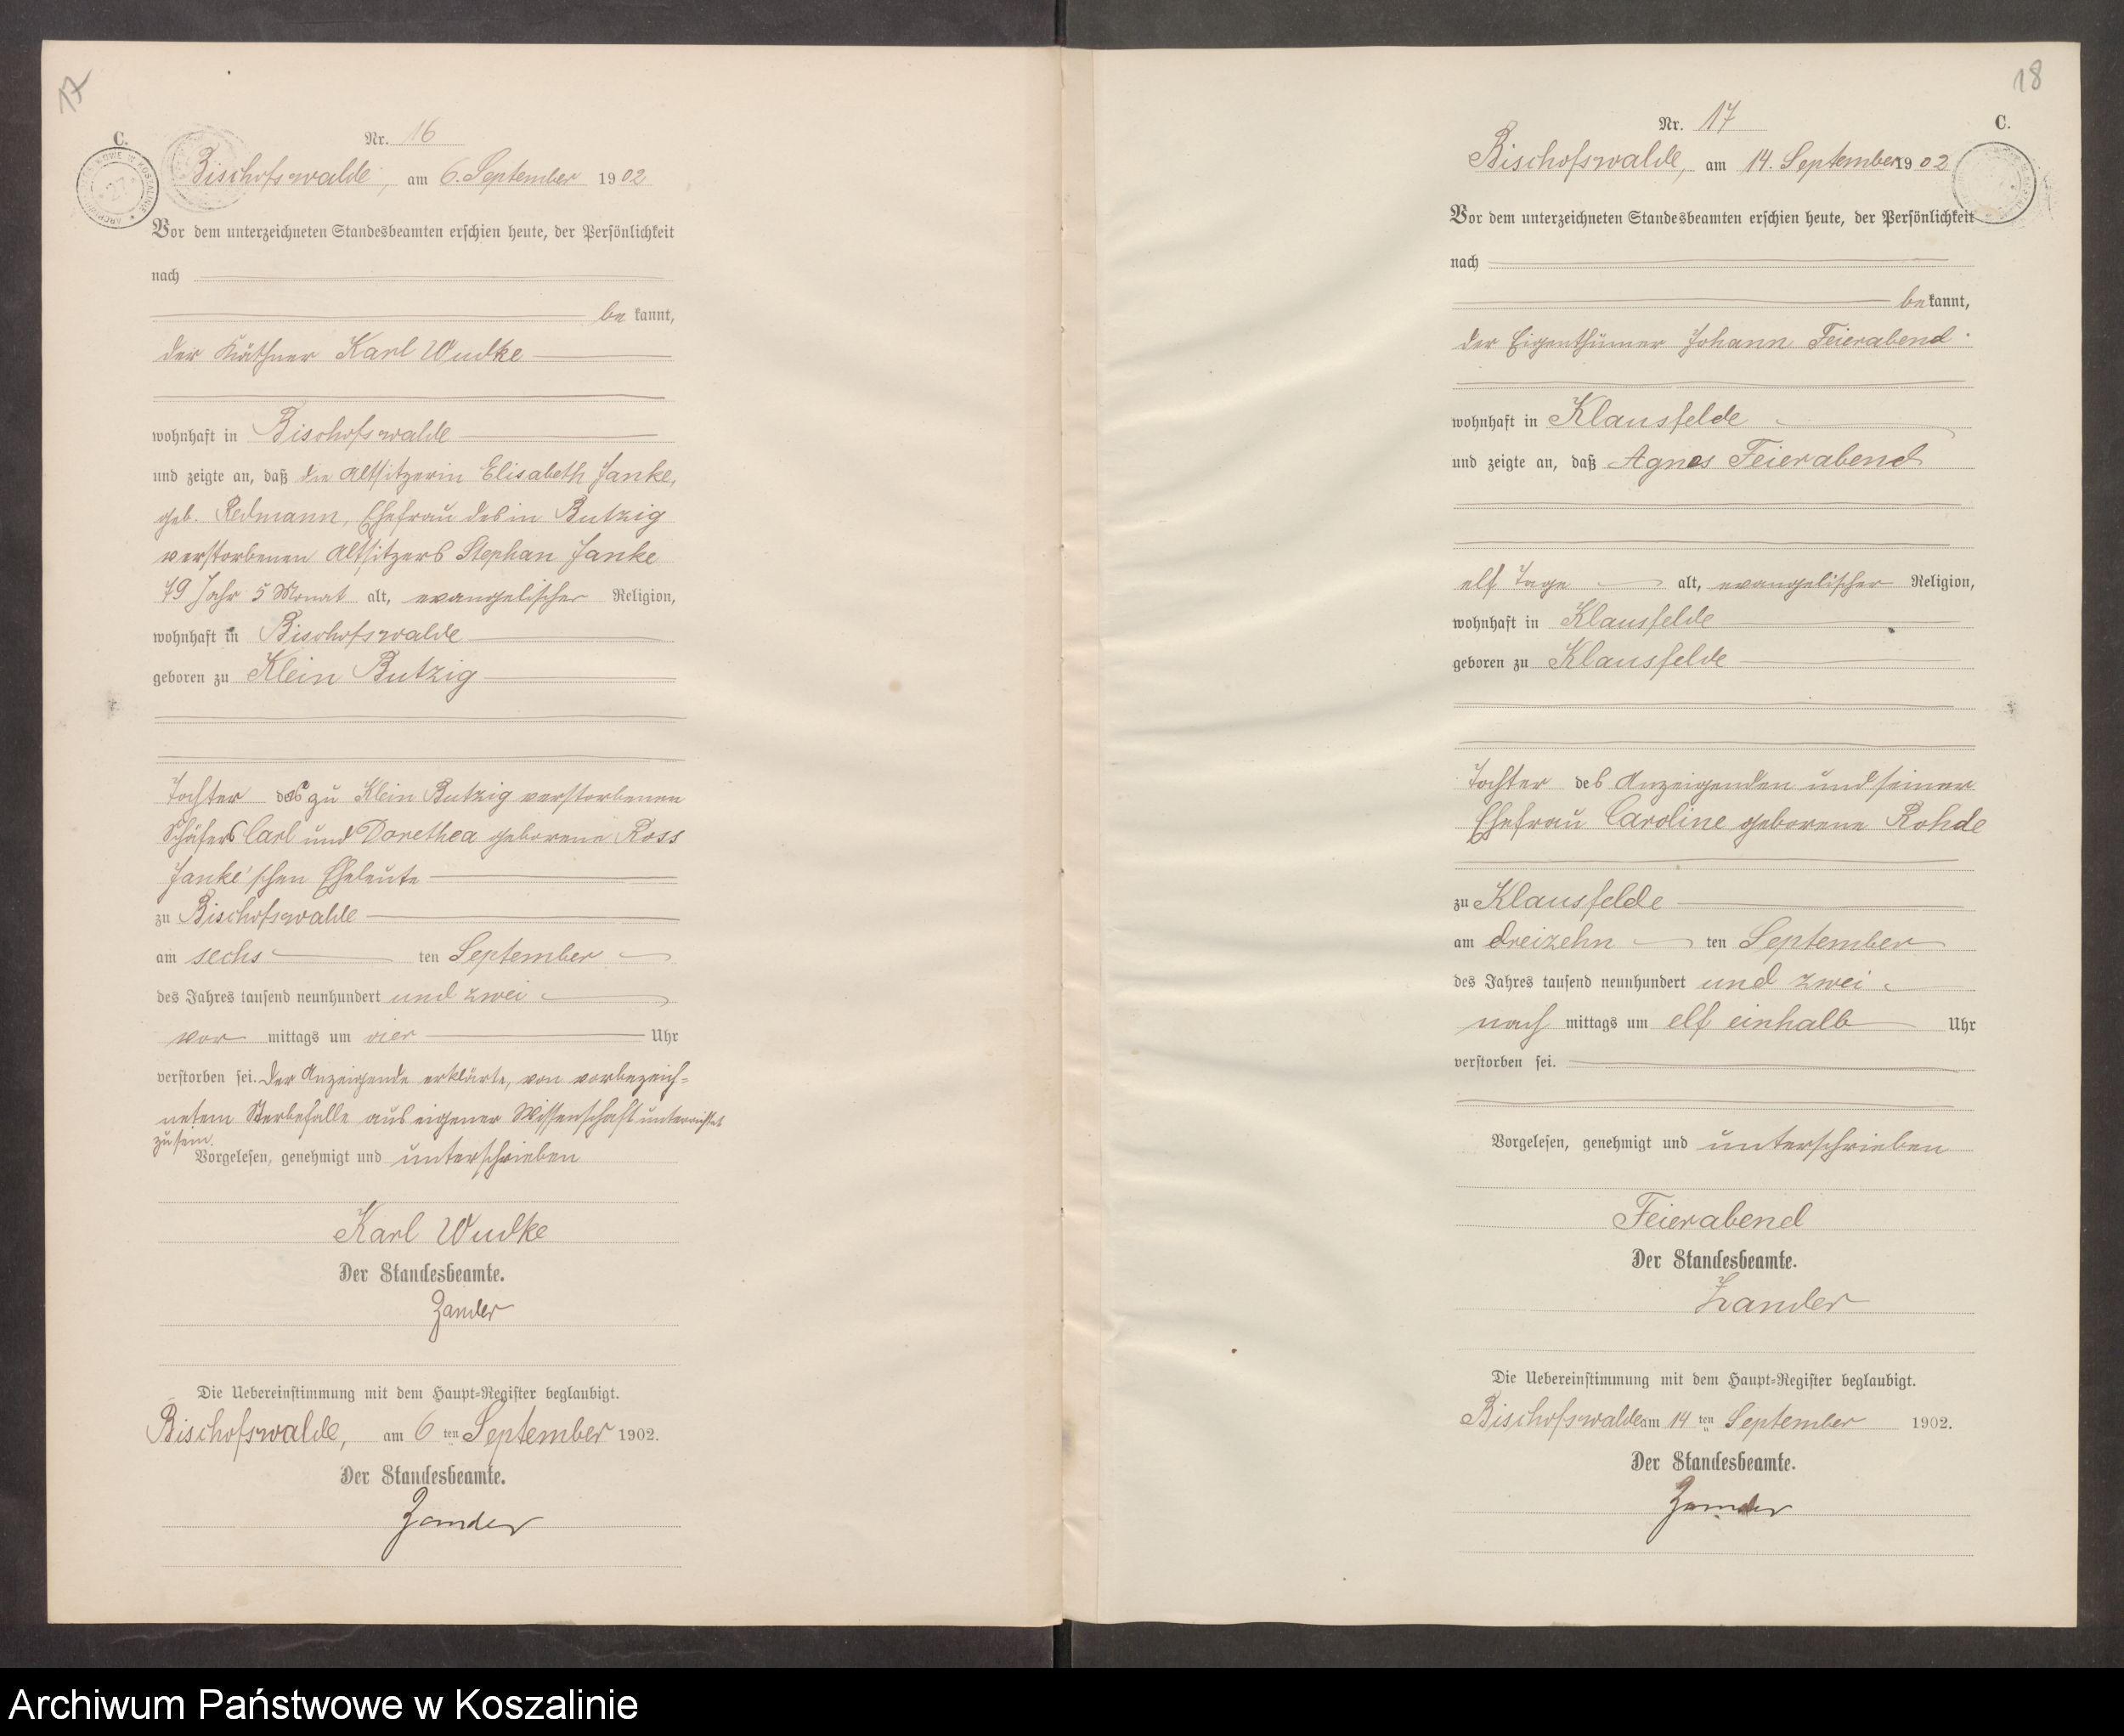 17
C.
Nr. 16
Bischofswalde, am 6. September 1902
Vor dem unterzeichneten Standesbeamten erschien heute, der Persönlichkeit
nach
be kannt,
der Käthner Karl Wudke
wohnhaft in Bischofswalde
und zeigte an, daß die Altsitzerin Elisabeth Janke,
geb. Redmann, Ehefrau des in Butzig
verstorbenen Altsitzers Stephan Janke
79 Jahr 5 Monat alt, evangelischer Religion,
wohnhaft in Bischofswalde
geboren zu Klein Butzig
Tochter des zu Klein Butzig verstorbenen
Schäfers Carl und Dorethea geborene Ross
Janke'schen Eheleute
zu Bischofswalde
am sechs ten September
des Jahres tausend neunhundert und zwei
vor mittags um vier Uhr
verstorben sei. Der Anzeigende erklärte, von vorbezeich=
netem Sterbefalle aus eigener Wissenschaft unterrichtet
zu sein.
Vorgelesen, genehmigt und unterschrieben
Karl Wudke
Der Standesbeamte.
Zander
Die Uebereinstimmung mit dem Haupt=Register beglaubigt.
Bischofswalde, am 6 ten September 1902.
Der Standesbeamte.
Zander
18
C.
Nr. 17
Bischofswalde, am 14. September 1902
Vor dem unterzeichneten Standesbeamten erschien heute, der Persönlichkeit
nach
be kannt,
der Eigenthümer Johann Feierabend
wohnhaft in Klausfelde
und zeigte an, daß Agnes Feierabend
elf Tage alt, evangelischer Religion,
wohnhaft in Klausfelde
geboren zu Klausfelde
Tochter des Anzeigenden und seiner
Ehefrau Caroline geborene Rohde
zu Klausfelde
am dreizehn ten September
des Jahres tausend neunhundert und zwei
nach mittags um elf einhalb Uhr
verstorben sei.
Vorgelesen, genehmigt und unterschrieben
Feierabend
Der Standesbeamte.
Zander
Die Uebereinstimmung mit dem Haupt=Register beglaubigt.
Bischofswalde am 14 ten September 1902.
Der Standesbeamte.
Zander
Archiwum Państwowe w Koszalinie